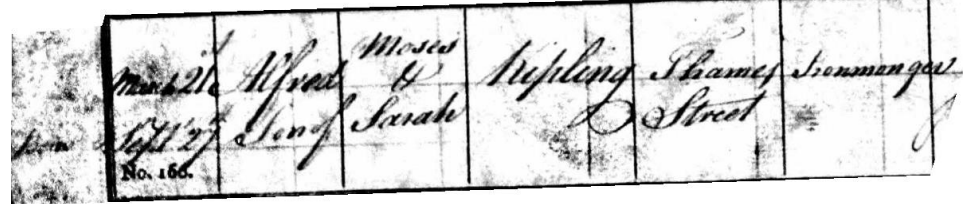 March 21st
Born Sept 27th
No. 160.
Alfred
Son of
Moses
&
Sarah
Kipling
Thames
Street
Ironmonger